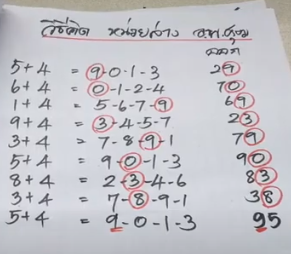 วิธีคิด หน่วยล่าง
ออก
5+4 = 9-0-1-3 29
6+4 = 0-1-2-4 70
1+4 = 5-6-7-9 69
9+4 = 3-4-5-7 23
3+4 = 7-8-9-1 79
5+4 = 9-0-1-3 90
8+4 = 2-3-4-6 83
3+4 = 7-8-9-1 38
5+4 = 9-0-1-3 95